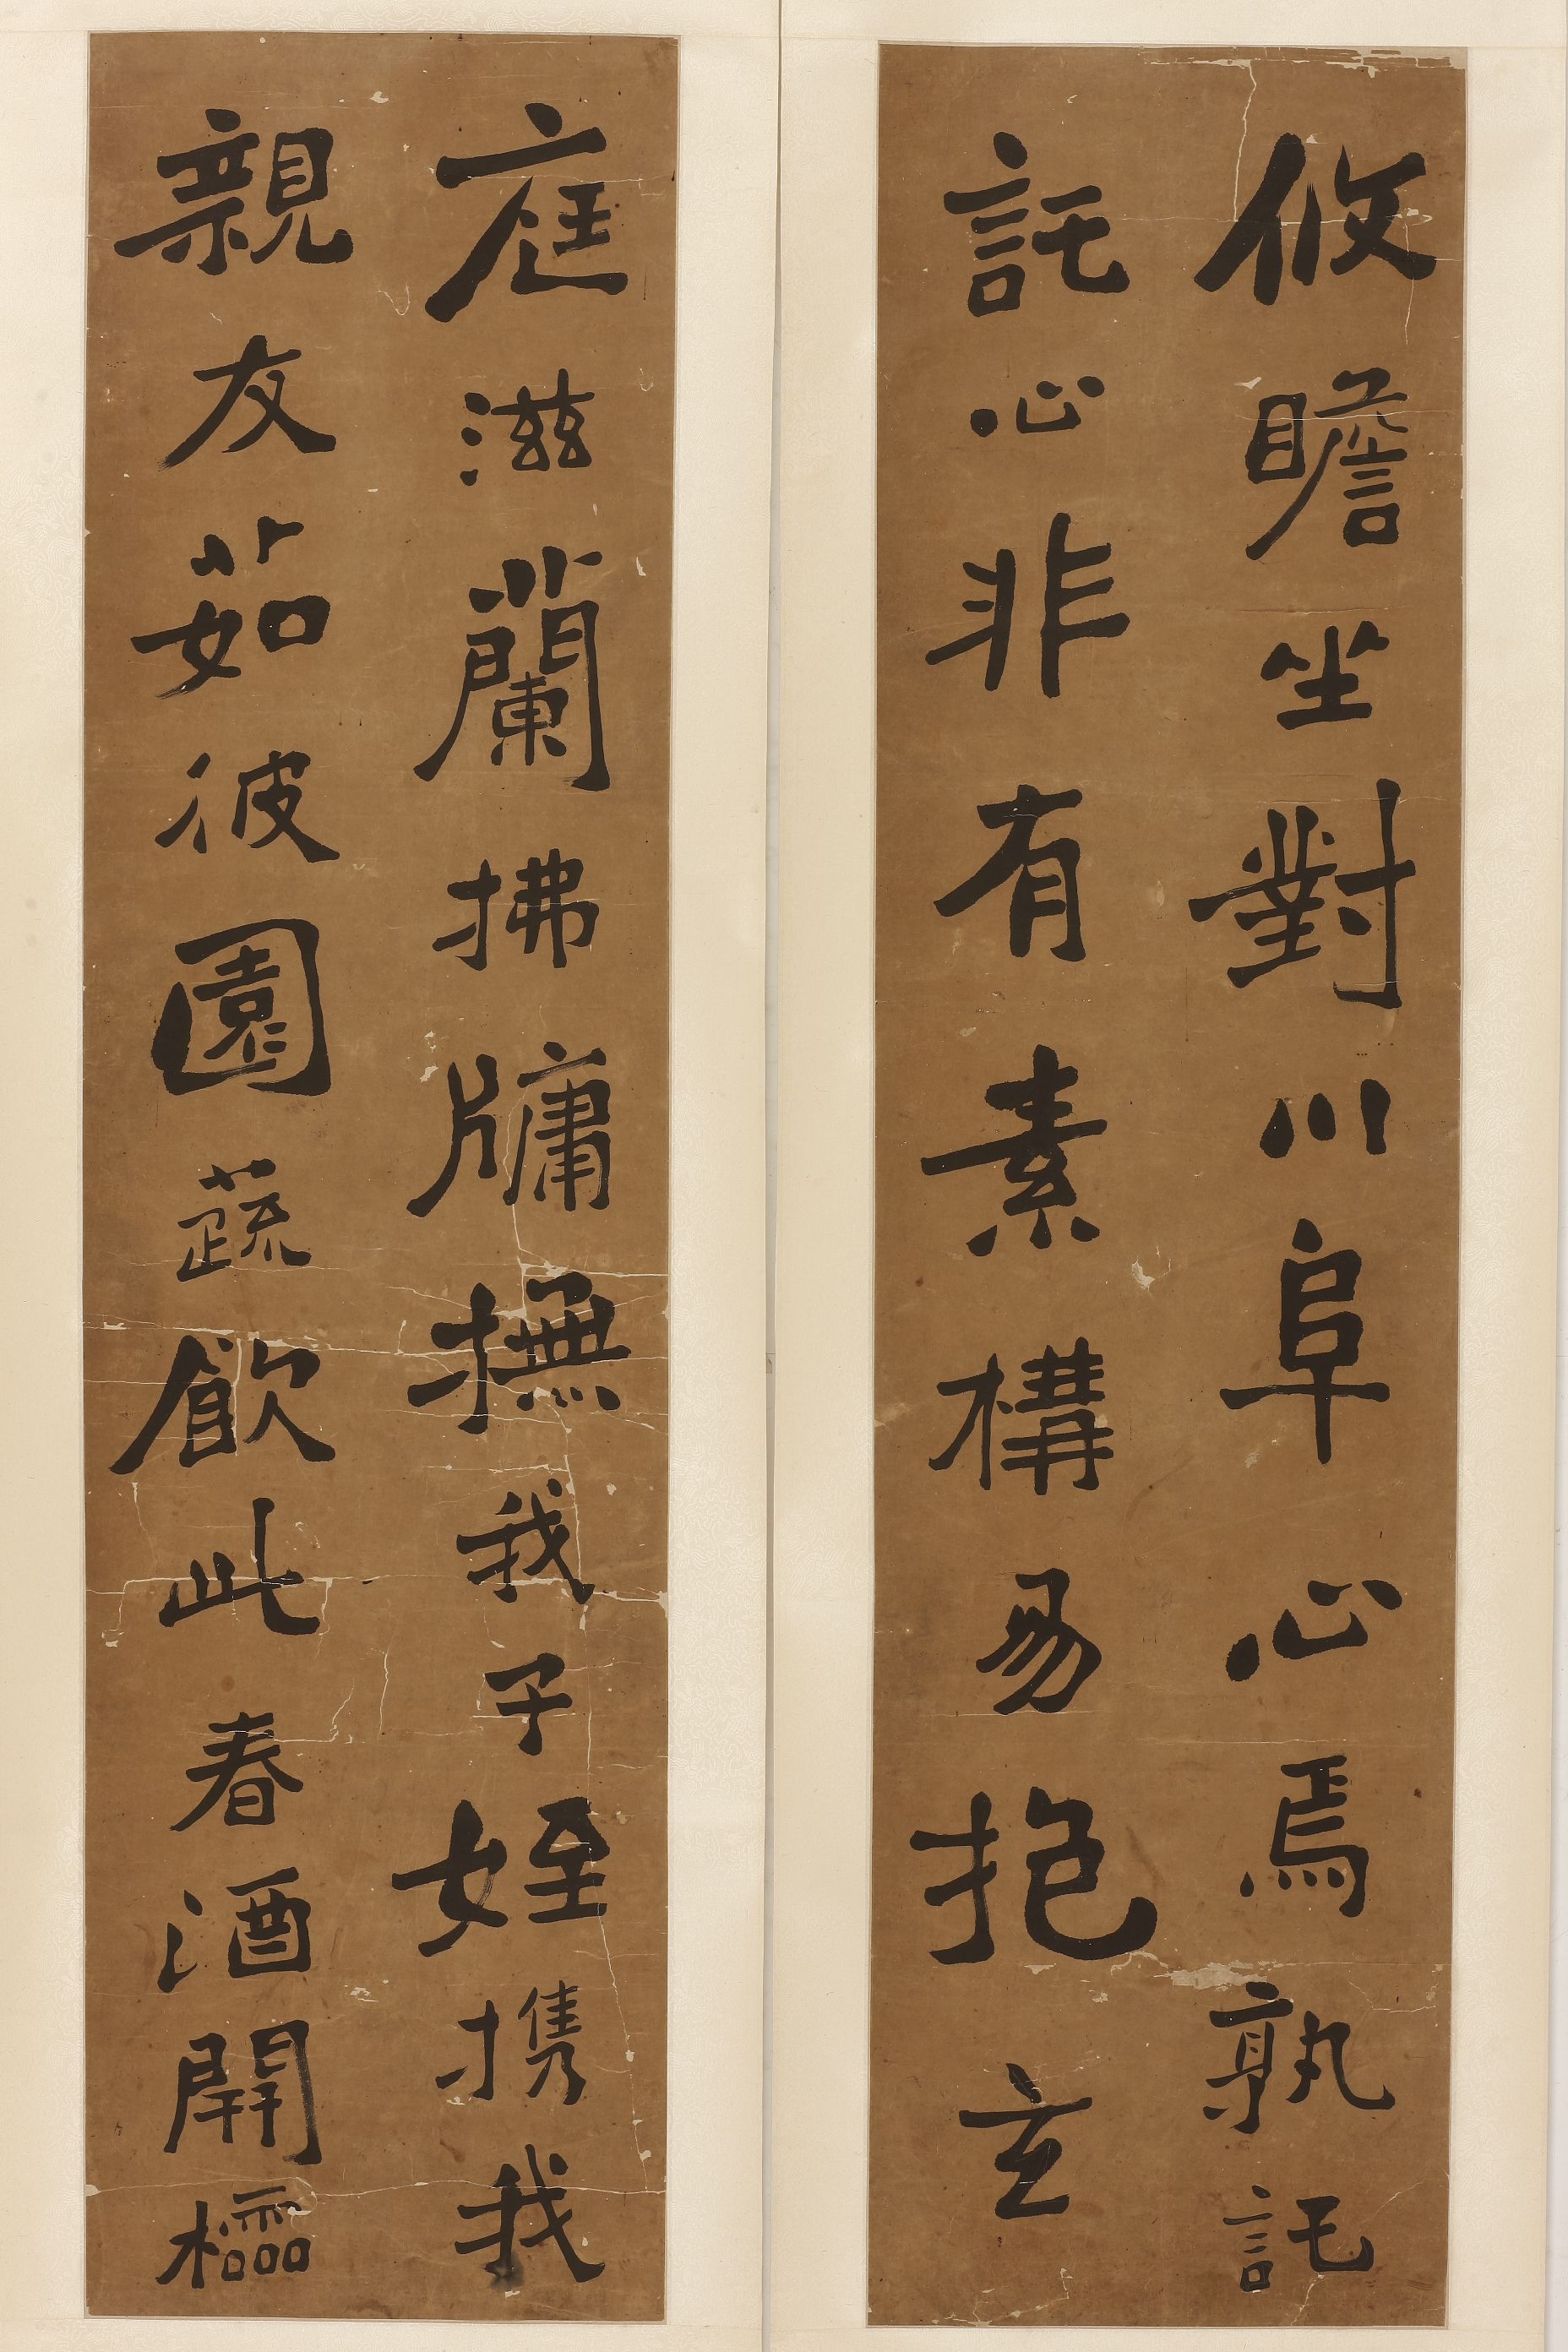 攸瞻坐對川阜心焉孰託
託心非有素構易抱玄
庭滋蘭拂牗撫我子姪攜我
親友茹彼園蔬飲此春酒開櫺